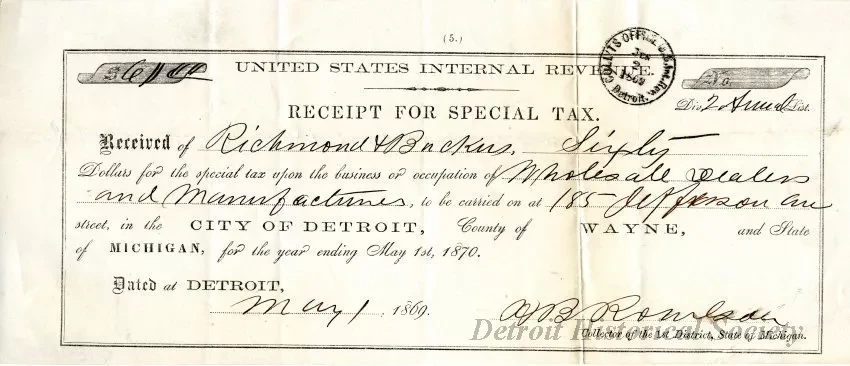 (5.)
$ 60 00
UNITED STATES INTERNAL REVENUE.
No.
COLL'TS OFFICE U.S. Int. Rev.
1869
Detroit.
Div. 2 Annual List.
RECEIPT FOR SPECIAL TAX.
Received of Richmond & Backus, Sixty
Dollars for the special tax upon the business or occupation of Wholesale Dealers
and Manufactures, to be carried on at 185 Jefferson ave
street, in the CITY OF DETROIT, County of WAYNE, and State
of MICHIGAN, for the year ending May 1st, 1870.
Dated at DETROIT,
May 1 1869.
Collector of the 1st District, State of Michigan.
Detroit Historical Society